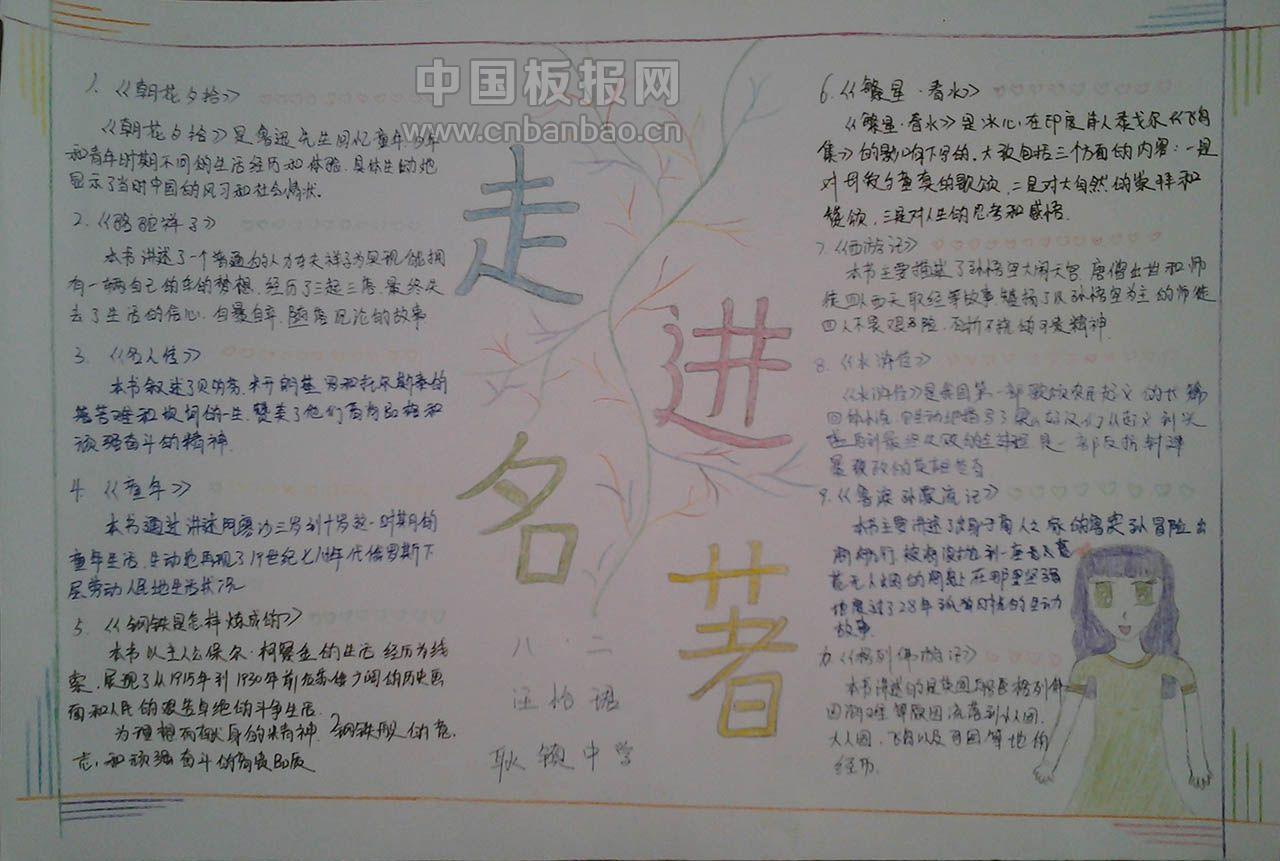 中国板报网
www.cnbanbao.cn
走进名著
1. 《朝花夕拾》
《朝花夕拾》是鲁迅先生回忆童年、少年
和青年时期不同的生活经历和体验。具体生动地
显示了当时中国的风习和社会情状。
2.《骆驼祥子》
本书讲述了一个普通的人力车夫祥子为实现能拥
有一辆自己的车的梦想，经历了三起三落，最终失
去了生活的信心，自暴自弃，随落沉沦的故事
3. 《名人传》
本书叙述了贝多芬，米开朗基罗和托尔斯泰的
苦难和坎坷的一生，赞美了他们高尚品格和
顽强奋斗的精神.
4. 《童年》
本书通过讲述阿廖沙三岁到十岁这一时期的
童年生活，生动地再现了19世纪七八十年代俄罗斯下
层劳动人民地生活状况
5. 《钢铁是怎样炼成的》
本书以主人公保尔·柯察金的生活经历为线
索，展现了从1915年到1930年前后苏俄广阔的历史画
面和人民的艰苦卓绝的斗争生活.
为理想而献身的精神、钢铁般的意
志，和顽强奋斗的高贵品质
6.《繁星·春水》
《繁星·春水》是冰心在印度诗人泰戈尔《飞鸟
集》的影响下写的，大致包括三个方面的内容：一是
对母爱与童真的歌颂，二是对大自然的崇拜和
赞颂，三是对人生的思考和感悟.
7.《西游记》
本书主要描述了孙悟空大闹天宫，唐僧出世和师
徒四人西天取经等故事
四人不畏艰险，百折不挠的可贵精神
8.《水浒传》
《水浒传》是我国第一部歌颂农民起义的长篇
9.《鲁滨孙漂流记》
本书主要讲述了出身于商人之家的鲁滨孙冒险出
在那里坚强
地度过了28年孤独时光的生动
故事
《格列佛游记》
大人国，飞岛以及
经历.
八·二
耿镇中学